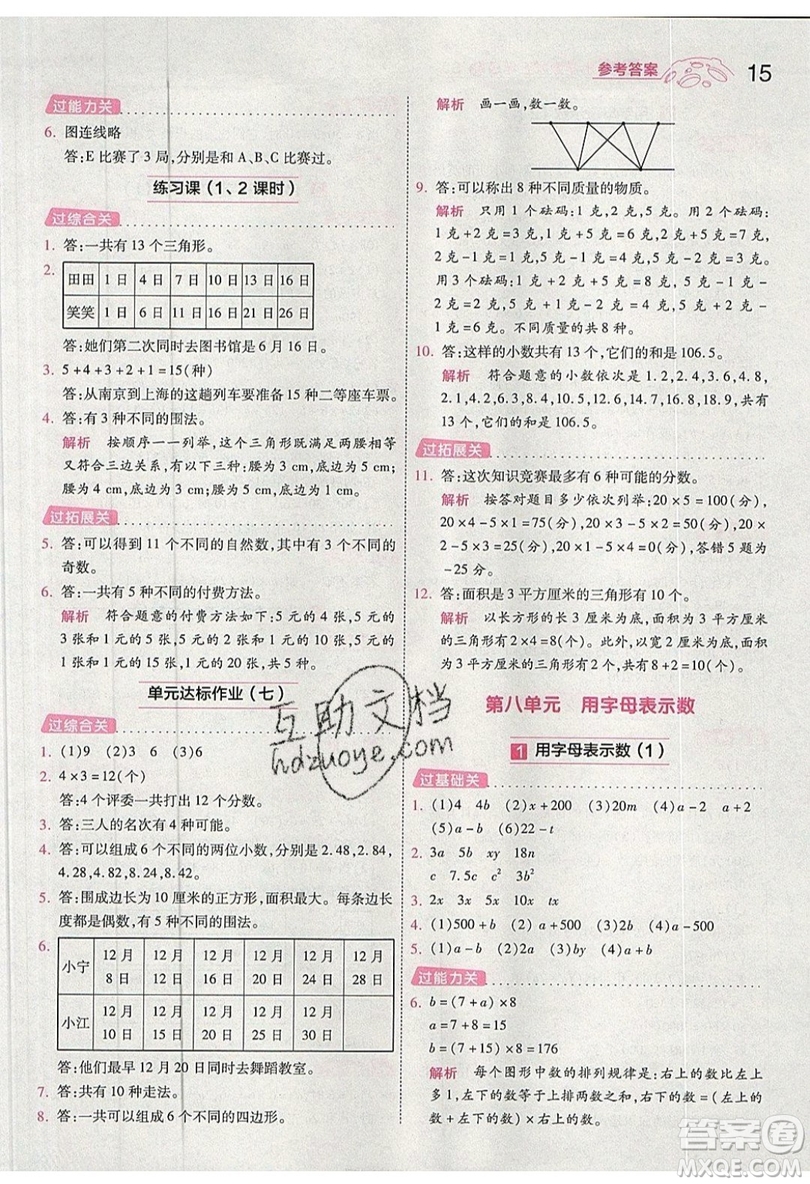 参考答案 15
过能力关
6. 图连线略
答:E比赛了3局,分别是和A、B、C比赛过。
练习课(1、2课时)
过综合关
1. 答:一共有13个三角形。
2. 田田 1日 4日 7日 10日 13日 16日
笑笑 1日 6日 11日 16日 21日 26日
答:她们第二次同时去图书馆是6月16日。
3. 5+4+3+2+1=15(种)
答:从南京到上海的这趟列车要准备15种二等座车票。
4. 答:有3种不同的围法。
解析 按顺序一一列举,这个三角形既满足周长为17厘米,又符合三边关系,底边是奇数。腰为8,底边为1;腰为7,底边为3;腰为6,底边为5。
过拓展关
5. 答:可以得到11个不同的自然数,其中有3个不同的
奇数。
6. 答:一共有5种不同的付费方法。
解析 符合题意的付费方法如下:5元4张,5元
3张和1元的5张,5元2张和1元的10张,5元1
张和1元的15张,1元20张,共5种。
单元达标作业(七)
过综合关
1. (1)9 (2)6 (3)6 (4)6
2. 4×3=12(个)
答:4个评委一共打出12个分数。
3. 答:三人的名次有4种可能。
4. 答:可以组成6个不同的两位小数,2.48,2.84,
4.28,4.82,8.24,8.42。
5. 答:围成边长为10厘米的正方形,面积最大。每条边长
都是偶数,有5种不同的围法。
6. 小宁 12月8日 12月12日 12月16日 12月20日 12月24日 12月28日
小江 12月10日 12月15日 12月20日 12月25日 12月30日
答:他们最早12月20日同时去舞蹈教室。
7. 答:共有10种走法。
8. 答:一共可以组成6个不同的四边形。
解析 画一画,数一数。
9. 答:可以称出8种不同质量的物质。
解析 只用1个砝码:1克,2克,5克。用2个砝码,
1克+2克=3克,1克+5克=6克,2克+5克=7克,
2克-1克=1克,5克-1克=4克,5克-2克=3克。
用3个砝码,1克+2克+5克=8克,5克+1克-
2克=4克,5克+2克-1克=6克,5克-1克-
2克=2克。不同的质量共8种。
10. 答:这样的小数共有13个,它们的和是106.5。
解析 符合题意的小数依次是1.2,2.4,3.6,4.8,
2.1,4.2,6.3,8.4,10.5,12.6,14.7,16.8,18.9,共
13个,它们的和是106.5。
过拓展关
11. 答:这次知识竞赛最多有6种可能的分数。
解析 按答对题目多少依次列举:20×5=100(分),
20×4-5=75(分),20×3-5×2=50(分),
20×2-5×3=25(分),20×1-5×4=0(分),答错5题为
0分。
12. 答:面积是3平方厘米的三角形有10个。
解析 以长方形的长3厘米为底,面积为3平方厘米
的三角形有1×4+1×4=8(个)。此外,以宽2厘米为底,面积为3平方厘米的三角形有2个。共10个。
第八单元 用字母表示数
1 用字母表示数(1)
过基础关
1. (1)4 4b (2)x+200 (3)20m (4)a-2 a+2
(5)8x (6)22-t
2. 3a 5b xy 18n
c 7.5c c² x²
3. 2x 3x 4x 5x
4. (1)500+a (2)a+500 (3)a-500 (4)a-500
5. (1)a-b (2)a÷b (3)ab (4)a+b
过能力关
6. b=(7+a)×8
a=7+8=15
b=(7+15)×8=176
解析 每个图形中数的排列规律是:右上的数比左上
多1,左下的数等于上排两数的和,右下的数=(右上的
数+左下的数)×右上的数。
互助文档
hdzuoye.com
答案圈
MXQE.COM